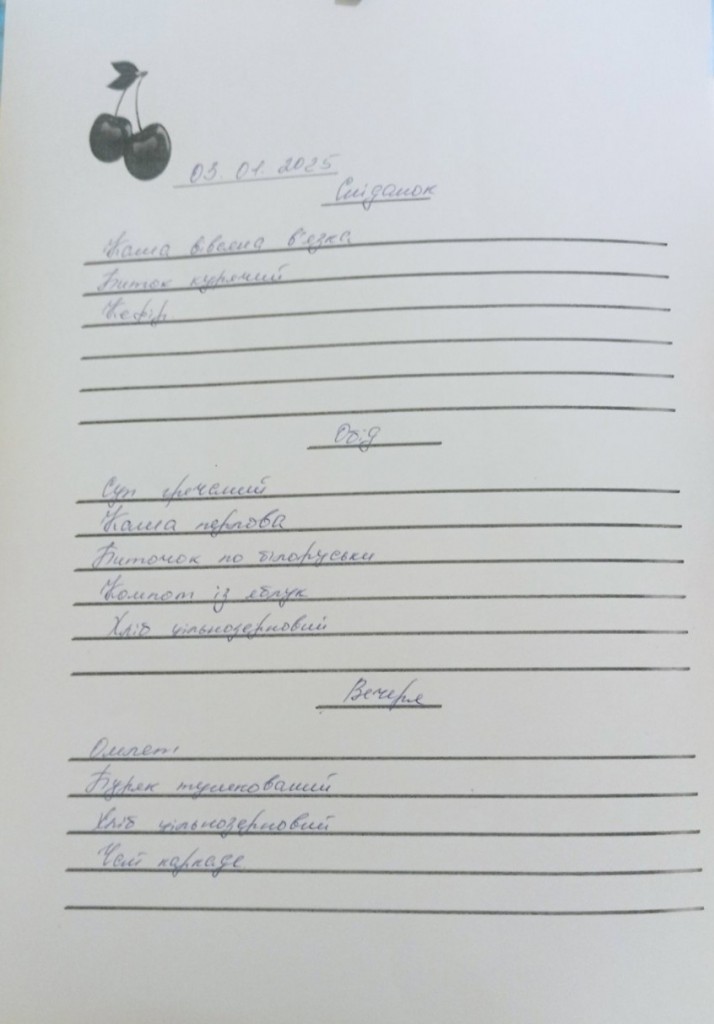 03.01.2025
Сніданок
Каша вівсяна в'язка
Биток курячий
Кефір
Обід
Суп гречаний
Каша перлова
Биточок по білоруськи
Компот із яблук
Хліб цільнозерновий
Вечеря
Омлет
Буряк тушкований
Хліб цільнозерновий
Чай каркаде